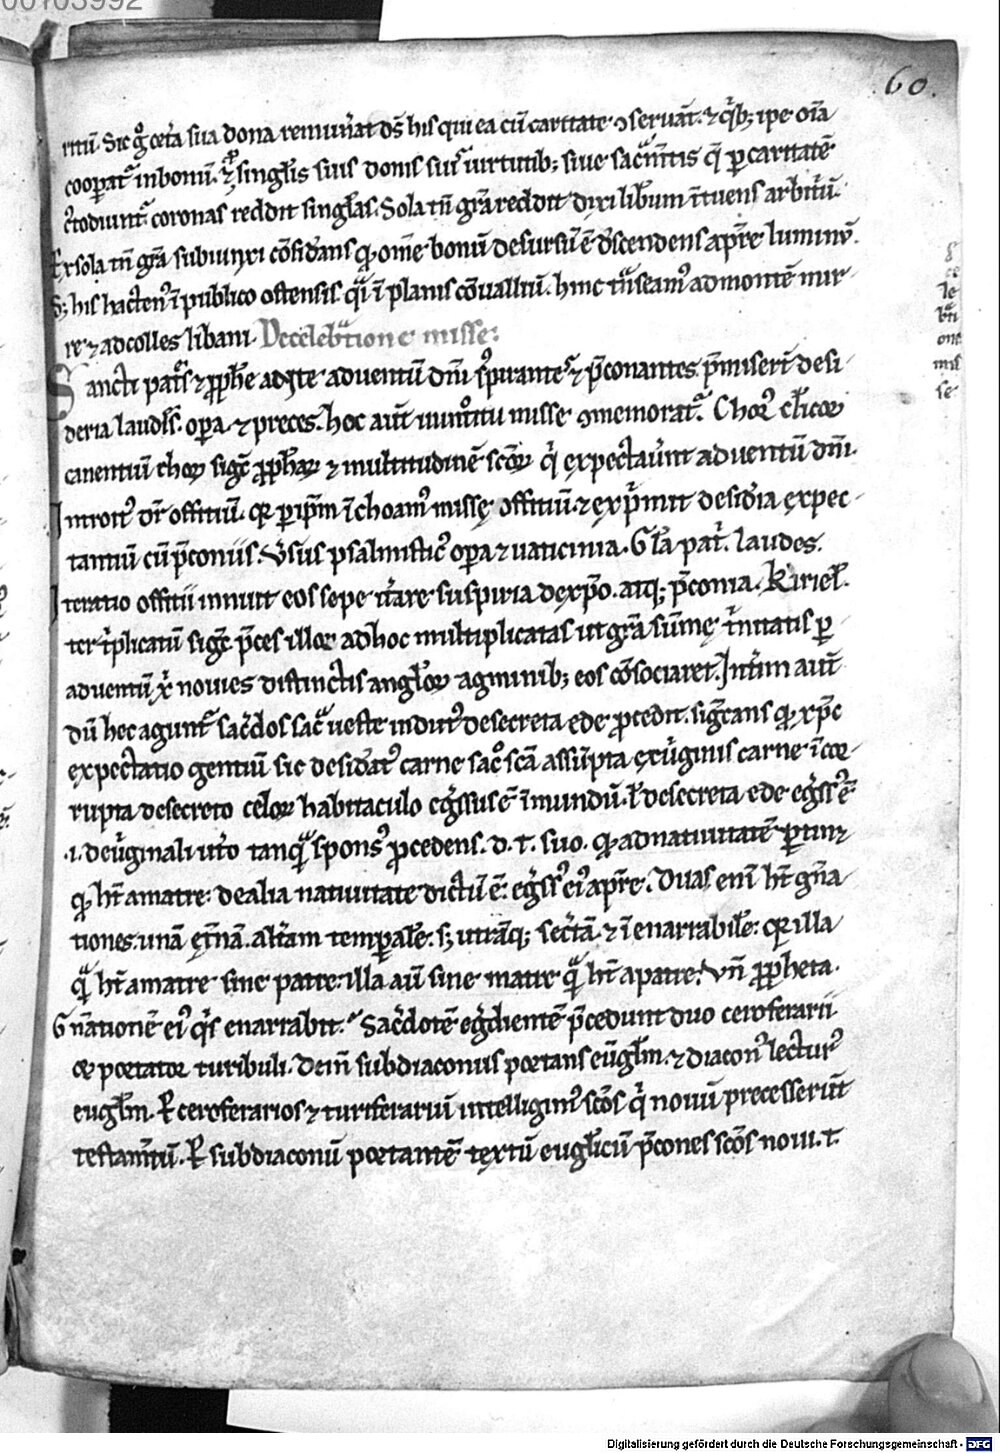 60.
ritū. Sic g̊ cet̃a sua dona remun̄at ds̄ his qui ea cū caritate ꝯseruāt. ⁊ qͥb; ipe om̄a
cooꝑat᷑ in bonū. ⁊ ꝓ singl̄is suis donis siu᷑ uirtutib; siue sacm̄tis q̄ ꝑ caritatē
c̄todiunt᷑ coronas reddit singl̄as. Sola tn̄ gr̄a reddit dixi lib̄um ītuens arbitͥū.
Ex sola tn̄ gr̄a subiunxi cōfid̄ans qꝫ om̄e bonū desursū ē d̄scendens a pr̄e luminū.
S; his hacten᷒ ī publico ostensis qͣi ī planis cōualliū. hinc tͣnseam᷒ ad montē mir
re ⁊ ad colles libani. De celebͣtione misse:
Sancti patͤs ⁊ ꝓph̄e ad xp̄e aduentū dn̄i sp̄uantes ⁊ p̄conantes p̄miserͭ desi
deria laudes. oꝑa ⁊ preces. hoc aut̄ iuuītu misse ꝯmemorat᷑. Chorꝰ cl̄icoꝝ
canentiū choꝝ siḡt ꝓph̄aꝝ ⁊ multitudinē sc̄oꝝ qͥ expectaūnt aduentū dn̄i.
Introitꝰ dr̄ offitiū. qꝛ ꝑ ip̄m īchoam᷒ missę offitiū. ⁊ exp̄mit desid̄ia expec
tantiū cū p̄coniis. Vsus psalmisticꝰ oꝑa ⁊ uaticinia. Gl̄a pat̄. laudes.
Iteratio offitii innuit eos sepe it̄are suspiria de xp̄o. atq; p̄conia. Kiriel̄.
ter tͥplicatū siḡt p̄ces illoꝝ ad hoc multiplicatas ut gr̄a sūmę tͥnitatis ꝑ
aduentū xͥ nouies distinctis angl̄oꝝ agminib; eos cōsociaret. Int̄im aut̄
dū hec agunt᷑ sac̄dos sacͣ ueste indutꝰ de secreta ede ꝓcedit. siḡcans qꝫ xp̄c
expectatio gentiū sic desid̄atꝰ carne sac̊sc̄a assūpta ex ūginis carne īcor
rupta de secreto celoꝝ habitaculo eg̃ssus ē ī mundū. ł de secreta ede eg̃ssꝰ ē
.i. de ūginali ut̄o tanqͣ sponsꝰ ꝓcedens. d. t. suo. qꝫ ad natiuitatē ꝑtinꝫ
qͣ ht̄ a matre: de alia natiuitate dictū ē: eg̃ssꝰ eiꝰ a pr̄e. Duas eni ht̄ gn̄a
tiones. unā et̄nā. alt̄am temꝑalē. s; utrāq; secͤtā. ⁊ īenarrabilē: qꝛ illa
qͣ ht̄ a matre sine patre. illa aū sine matre qͣ ht̄ a patre. Vn̄ ꝓpheta.
Gn̄ationē eiꝰ qͥs enarrabit.. Sac̄dotē eg̃dientē p̄cedunt duo ceroferarii
ac portator turibuli. Dein̄ subdiaconus portans eūgl̄m. ⁊ diaconꝰ lecturꝰ
eugl̄m. Ꝑ ceroferarios ⁊ turiferariū intelligimꝰ sc̄os qͥ nouū precesserūt
testam̄tū. Ꝑ subdiaconū portantē textū eugl̄icū p̄cones sc̄os noui. t.
de
ce
le
bͣti
one
mis
se
Digitalisierung gefördert durch die Deutsche Forschungsgemeinschaft - DFG